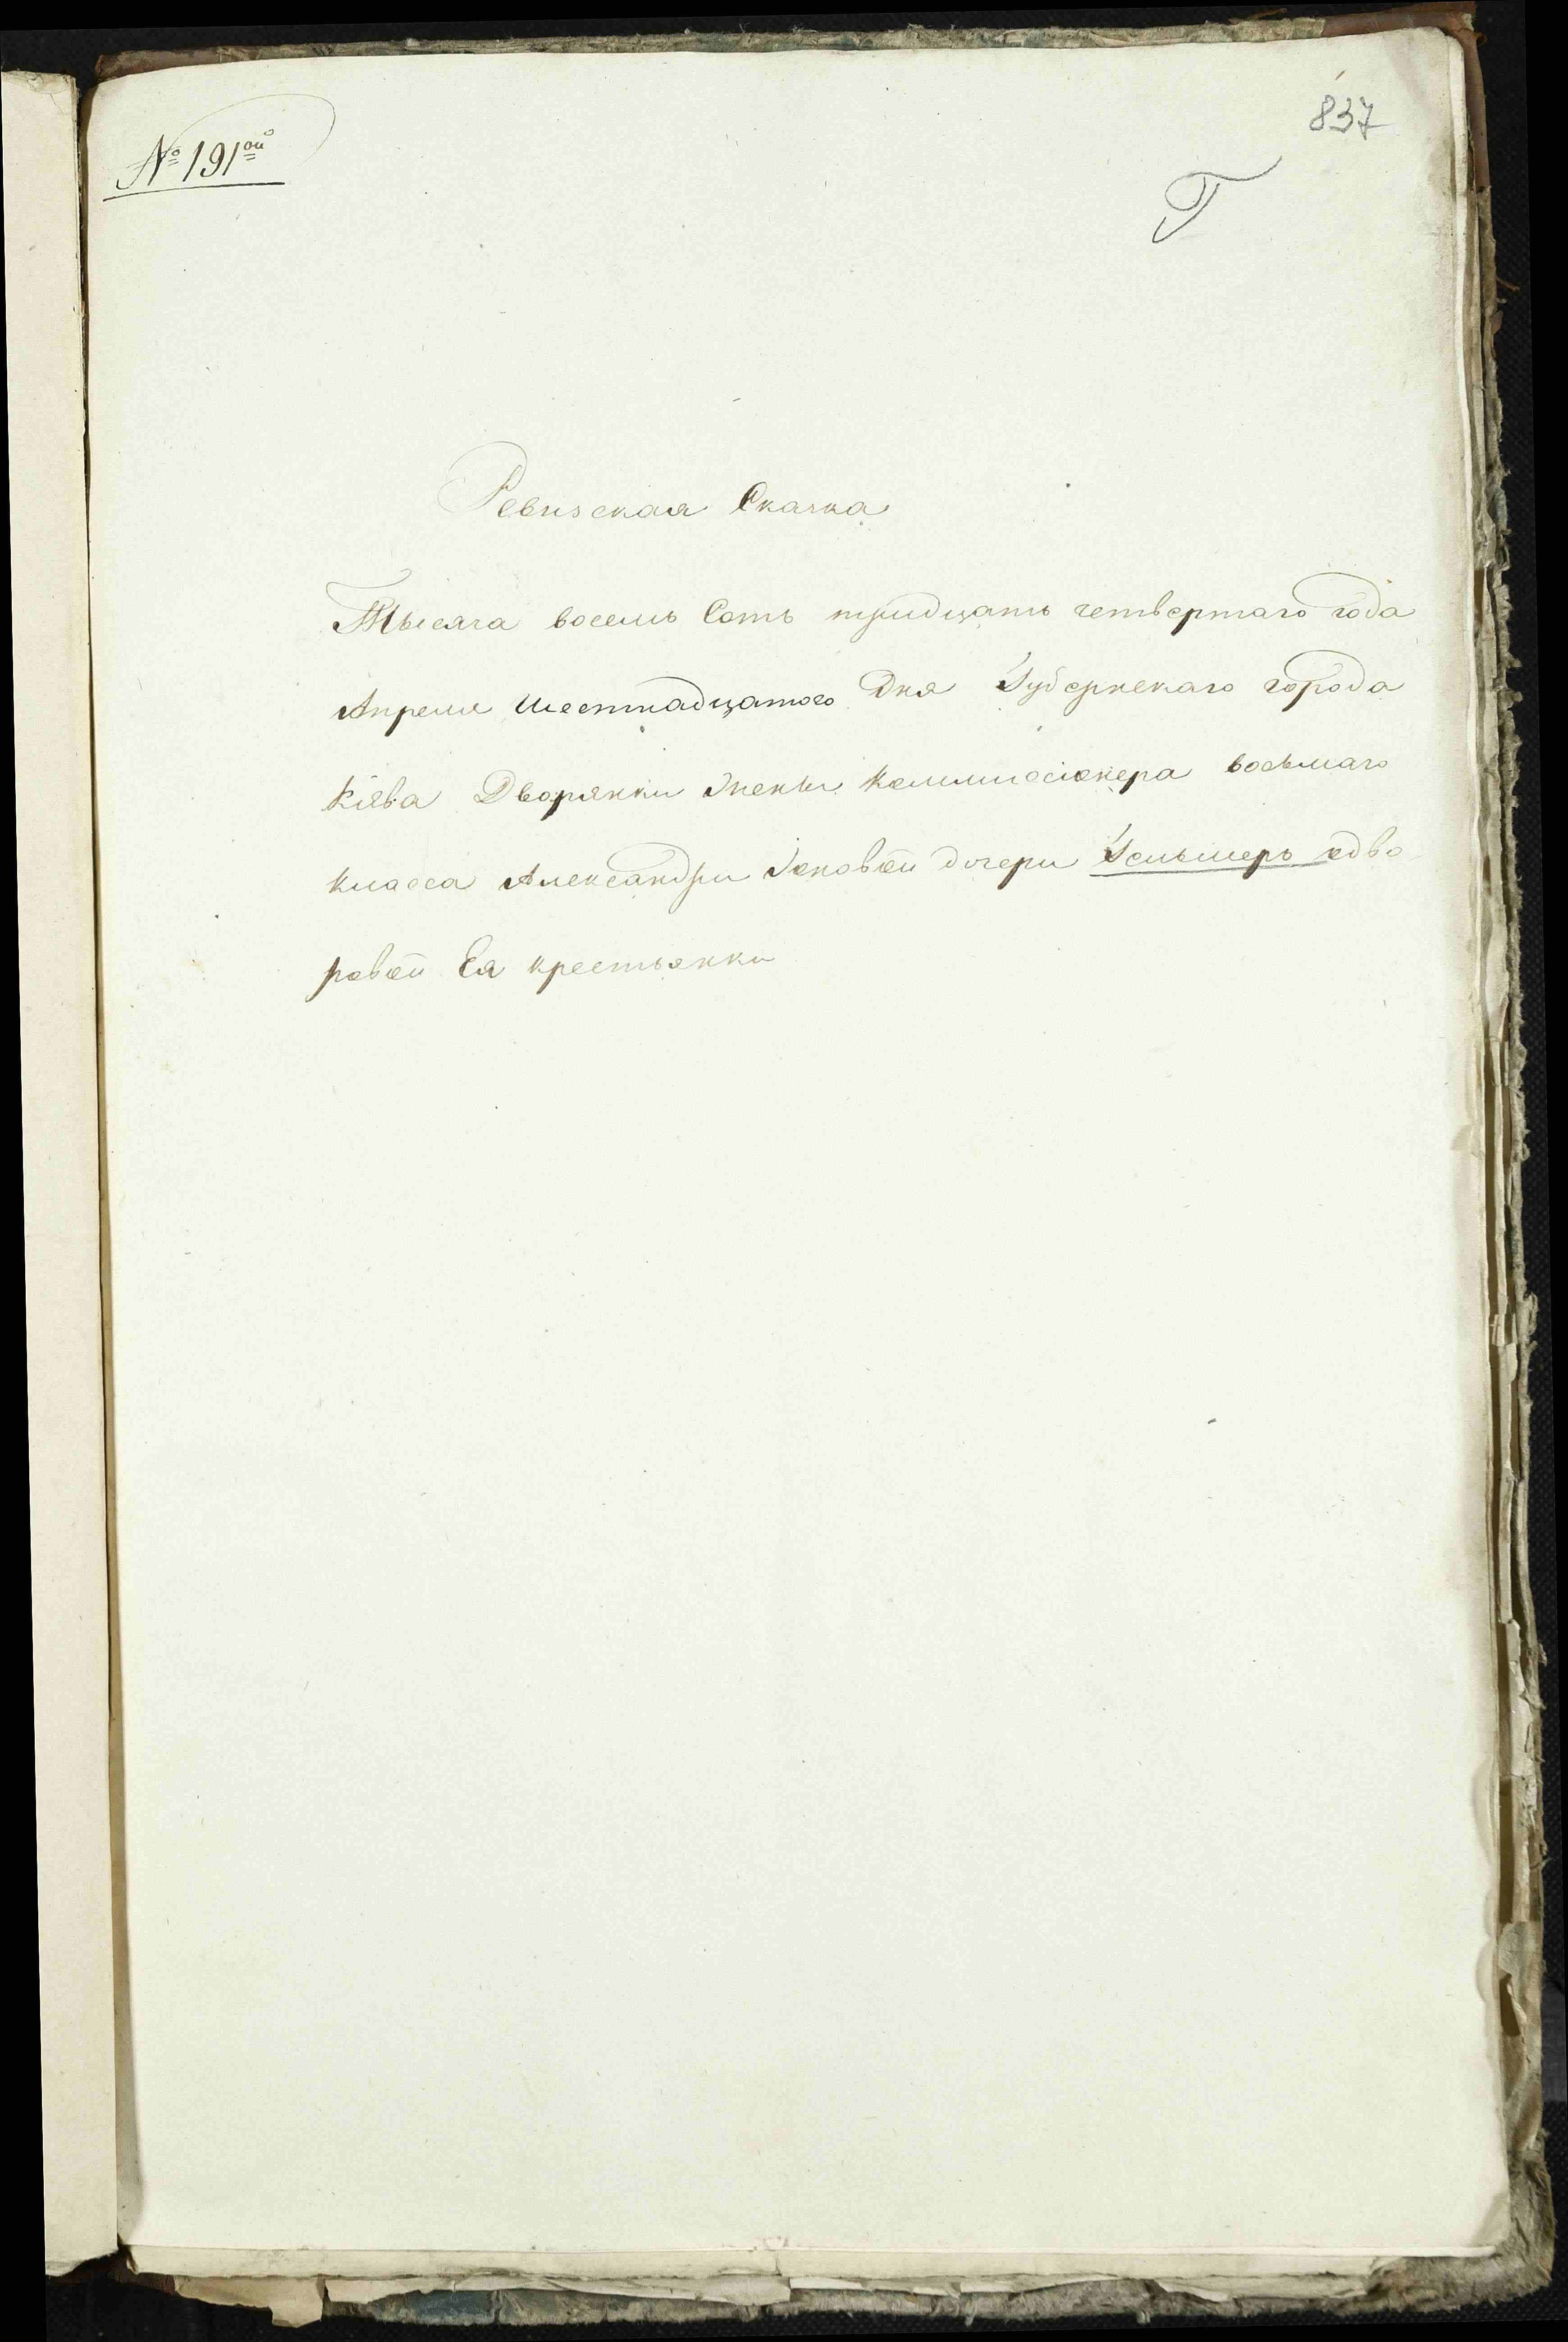 837
№ 191ой
Г
Ревизская Сказка
Тысяча восемь Сотъ тридцать четвертаго года
Апреля шестнадцатого Дня Губернскаго города
Кіева Дворянки Жены Коммиссіонера восьмаго
класса Александры Яковой дочери Гельмеръ одво
ровой Ея крестьянки